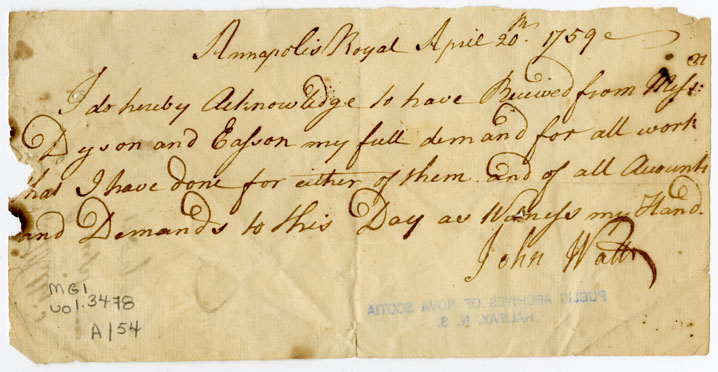 Annapolis Royal April 20th. 1759
I do hereby Acknowledge to have Received from Messrs:
Dyson and Easson my full demand for all work
that I have done for either of them and of all Accounts
and Demands to this Day as Witness my Hand.
John Watts
PUBLIC ARCHIVES OF NOVA SCOTIA
HALIFAX, N. S.
MG1
vol. 3478
A/54